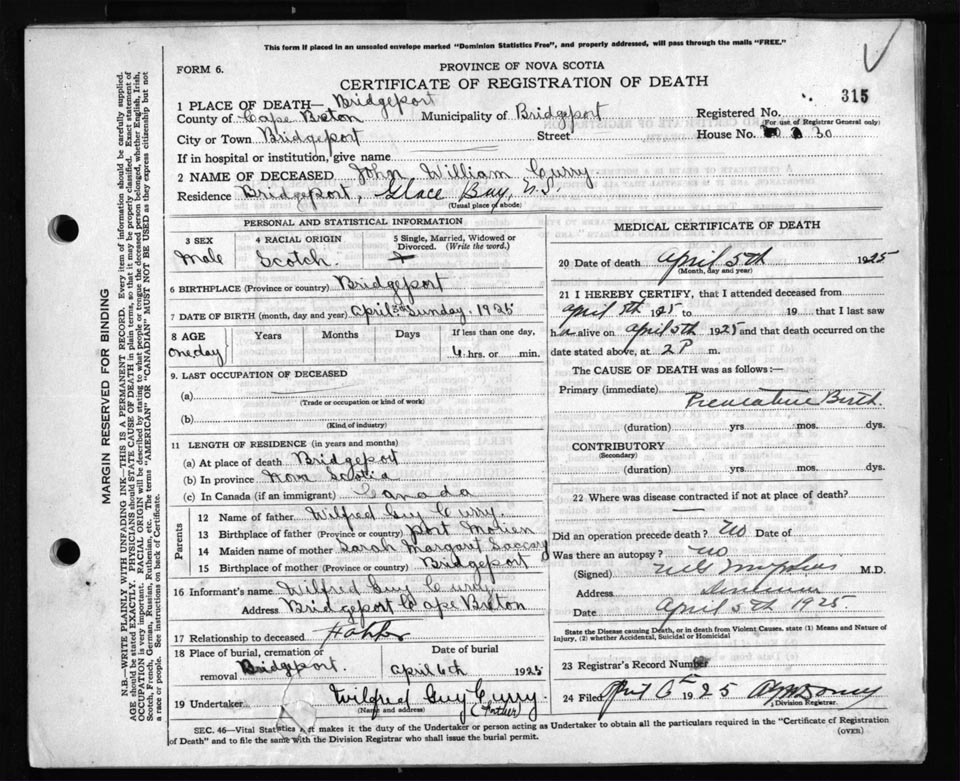 This form if placed in an unsealed envelope marked "Dominion Statistics Free", and properly addressed, will pass through the mails "FREE."
FORM 6.
PROVINCE OF NOVA SCOTIA
CERTIFICATE OF REGISTRATION OF DEATH
315
1 PLACE OF DEATH— Bridgeport
County of Cape Breton Municipality of Bridgeport Registered No.
(For use of Registrar General only)
City or Town Bridgeport Street House No. 30
If in hospital or institution, give name
2 NAME OF DECEASED John William Curry
Residence Bridgeport, Glace Bay, N.S.
(Usual place of abode)
PERSONAL AND STATISTICAL INFORMATION
3 SEX Male
4 RACIAL ORIGIN Scotch.
5 Single, Married, Widowed or Divorced. (Write the word.)
6 BIRTHPLACE (Province or country) Bridgeport
7 DATE OF BIRTH (month, day and year) April 5th Sunday, 1925
8 AGE Years Months Days If less than one day,
one day hrs. or min.
9. LAST OCCUPATION OF DECEASED
(a)
(Trade or occupation or kind of work)
(b)
(Kind of industry)
11 LENGTH OF RESIDENCE (in years and months)
(a) At place of death Bridgeport
(b) In province Nova Scotia
(c) In Canada (if an immigrant) Canada
Parents
12 Name of father Wilfred Guy Curry
13 Birthplace of father (Province or country) Port Morien
14 Maiden name of mother Sarah Margaret
15 Birthplace of mother (Province or country) Bridgeport
16 Informant's name Wilfred Guy Curry
Address Bridgeport Cape Breton
17 Relationship to deceased Father
18 Place of burial, cremation or removal Bridgeport.
Date of burial April 6th 1925
19 Undertaker Wilfred Guy Curry.
(Name and address) (Father)
MEDICAL CERTIFICATE OF DEATH
20 Date of death April 5th 1925
(Month, day and year)
21 I HEREBY CERTIFY, that I attended deceased from
April 5th 1925 to 19 that I last saw
h alive on April 5th 1925 and that death occurred on the
date stated above, at 2 P m.
The CAUSE OF DEATH was as follows:—
Primary (immediate)
Premature Birth.
(duration) yrs mos. dys.
CONTRIBUTORY
(Secondary)
(duration) yrs. mos. dys.
22 Where was disease contracted if not at place of death?
—
Did an operation precede death? No Date of
Was there an autopsy? No
(Signed) M.D.
Address
Date April 5th 1925
State the Disease causing Death, or in death from Violent Causes, state (1) Means and Nature of
Injury, (2) whether Accidental, Suicidal or Homicidal
23 Registrar's Record Number
24 Filed April 6th 1925
Division Registrar.
SEC. 46—Vital Statistics Act makes it the duty of the Undertaker or person acting as Undertaker to obtain all the particulars required in the "Certificate of Registration
of Death" and to file the same with the Division Registrar who shall issue the burial permit.
(OVER)
MARGIN RESERVED FOR BINDING
N.B.—WRITE PLAINLY WITH UNFADING INK—THIS IS A PERMANENT RECORD. Every item of information should be carefully supplied.
AGE should be stated EXACTLY. PHYSICIANS should STATE CAUSE OF DEATH in plain terms, so that it may be properly classified. Exact statement of
OCCUPATION is very important. RACIAL ORIGIN will be described by stating to what people or tongue the deceased person belonged, whether English, Irish,
Scotch, French, German, Russian, Ruthenian, etc. The terms "AMERICAN" or "CANADIAN" MUST NOT BE USED as they express citizenship but not
a race or people. See instructions on back of Certificate.